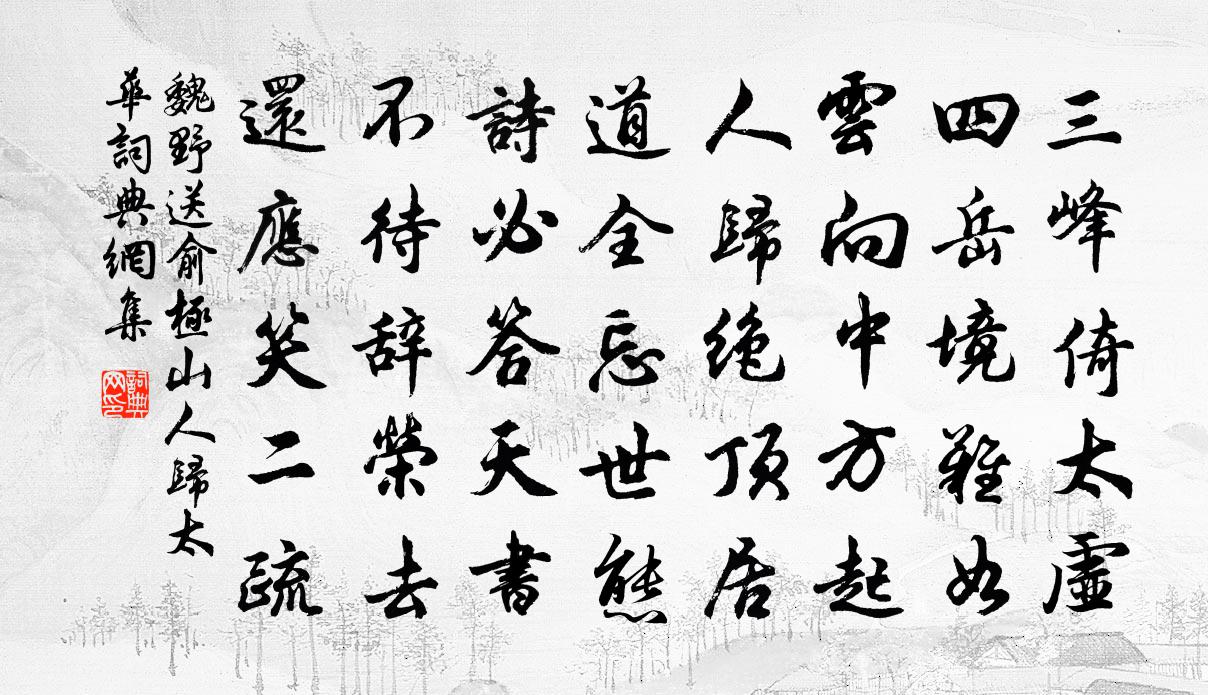 三峰倚太虛
四岳境難如
雲向中方起
人歸絶頂居
道全忘世態
詩必答天書
不待辞榮去
還應笑二疏
魏野送俞極山人歸太
華詞典網集
詞典網印